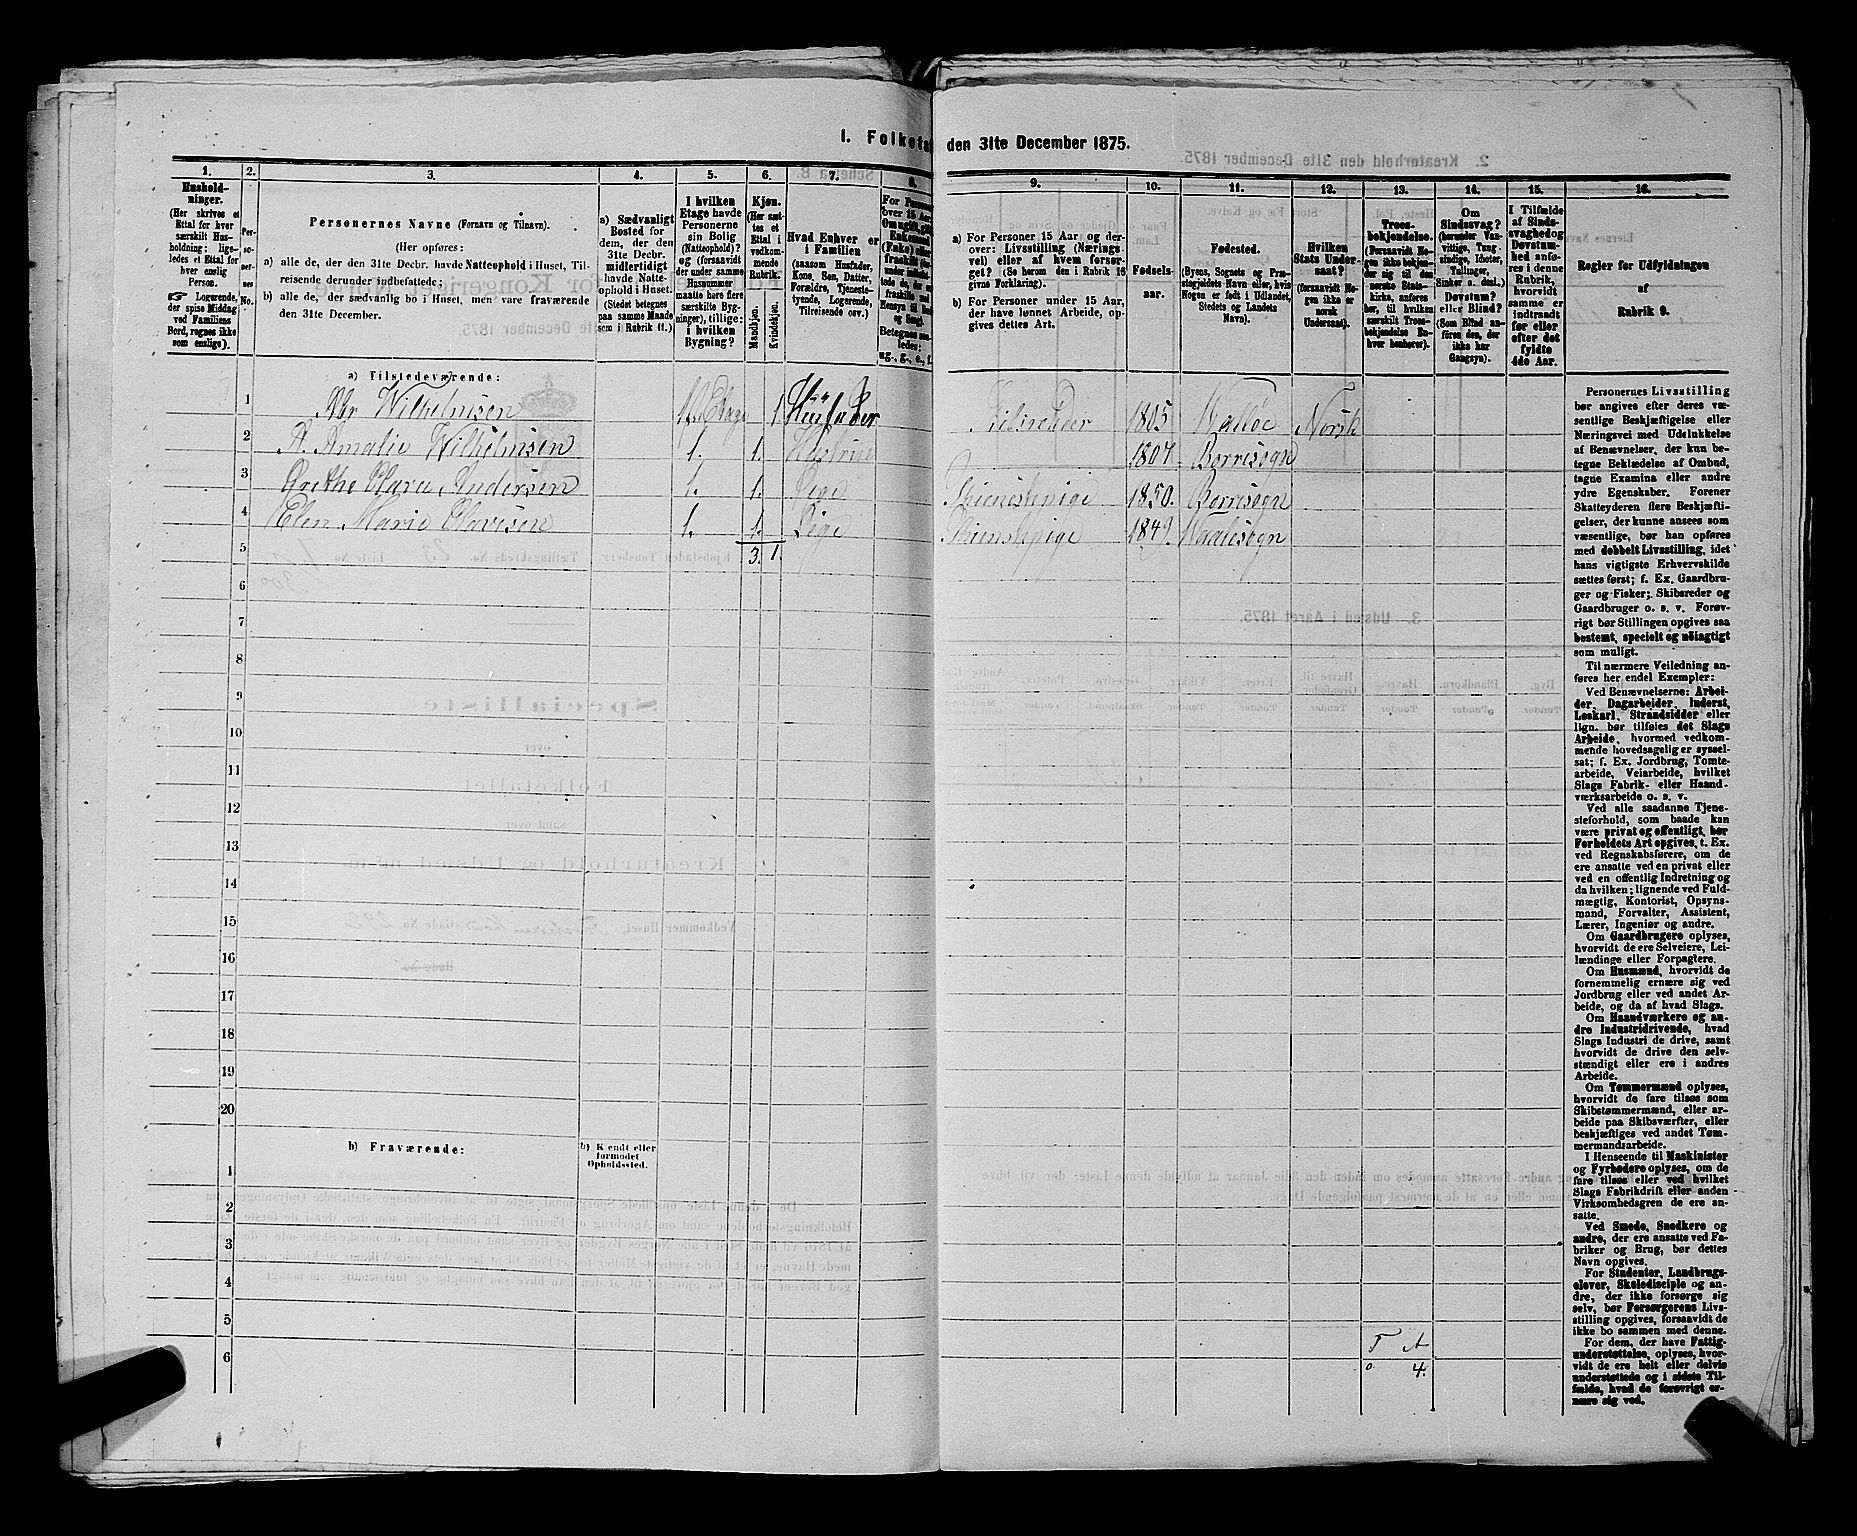 1. Folketal den 31te December 1875.
1. 2. 3. 4. 5. 6. 7. 8. 9. 10. 11. 12. 13. 14. 15. 16.
Hushold-
ninger.
(Her skrives et
Ettal for hver
særskilt Hus-
holdning; lige-
ledes et Ettal for
hver enslig
Person.
Logerende,
der spise Middag
ved Familiens
Bord, regnes ikke
som enslige).
Per-
so-
ner-
nes
No.
Personernes Navne (Fornavn og Tilnavn).
(Her opføres:
a) alle de, der den 31te Decbr. havde Natteophold i Huset, Til-
reisende derunder indbefattede;
b) alle de, der sædvanlig bo i Huset, men vare fraværende
den 31te December.
a) Sædvanligt
Bosted for
dem, der den
31te Decbr.
midlertidigt
havde Natte-
ophold i Huset.
(Stedet betegnes
paa samme Maade
som i Rubrik 11.)
I hvilken
Etage havde
Personerne
sin Bolig
(Natteophold)?
og (forsaavidt
der under samme
Husnummer
maatte høre flere
særskilte Byg-
ninger), tillige:
i hvilken
Bygning?
Kjøn.
(Her sæt-
tes et
Ettal i
vedkom-
mende
Rubrik.
Mandkjøn.
Kvindekjøn.
Hvad Enhver er
i Familien
(saasom Husfader,
Kone, Søn, Datter,
Forældre, Tjeneste-
tyende, Logerende,
Tilreisende osv.)
a) For Personer 15 Aar og der-
over: Livsstilling (Nærings-
vei) eller af hvem forsør-
get? (Se herom den i Rubrik 16
givne Forklaring).
b) For Personer under 15 Aar,
der have lønnet Arbeide, op-
gives dettes Art.
Fødsels-
aar.
Fødested.
(Byens, Sognets og Præ-
stegjeldets Navn eller, hvis
Nogen er født i Udlandet,
Stedets og Landets
Navn).
Hvilken
Stats Under-
saat?
(forsaavidt No-
gen ikke er
norsk
Undersaat).
Troes-
bekjendelse.
(Forsaavidt No-
gen ikke beken-
der sig til den
norske Stats-
kirke, anføres
her, til hvilken
særskilt Troes-
bekjendelse En-
hver henhører).
Om
Sindssvag?
(herunder Van-
vittige, Tung-
sindige, Idioter,
Tullinger,
Sinker o. desl.)
Døvstum?
eller Blind?
(Som Blind an-
føres den, der
ikke har
Gangsyn).
I Tilfælde
af Sinds-
svaghed og
Døvstum-
hed anfø-
res i denne
Rubrik,
hvorvidt
samme er
indtraadt
før eller
efter det
fyldte
4de Aar.
Regler for Udfyldningen
af
Rubrik 9.
a) Tilstedeværende:
1 Abr Wilhelmsen 1ste Etage 1 Husfader Skibsreder 1805 Walløe Norsk
2 A. Amalie Wilhelmsen 1. 1. Hustrue 1807 Borresogn
3 Grethe Clara Andersen 1. 1. Pige Thienestepige 1850. Borresogn
4 Elen Marie Olavesen 1. 1. Pige Thienstepige 1849. Waalesogn
5 3. 1.
6
7
8
9
10
11
12
13
14
15
16
17
18
19
20
b) Fraværende: b) Kjendt eller
formodet
Opholdssted.
1
2
3
4
5
6
T A
0 4.
Personernes Livsstilling
bør angives efter deres væ-
sentlige Beskjæftigelse eller
Næringsvei med Udelukkelse
af Benævnelser, der kun be-
tegne Beklædelse af Ombud,
tagne Examina eller andre
ydre Egenskaber. Forener
Skatteyderen flere Beskjæfti-
gelser, der kunne ansees som
væsentlige, bør han opføres
med dobbelt Livsstilling, idet
hans vigtigste Erhvervskilde
sættes først; f. Ex. Gaardbru-
ger og Fisker; Skibsreder og
Gaardbruger o. s. v. Forøv-
rigt bør Stillingen opgives saa
bestemt, specielt og nøiagtigt
som muligt.
Til nærmere Veiledning an-
føres her endel Exempler:
Ved Benævnelserne: Arbei-
der, Dagarbeider, Inderst,
Løskarl, Strandsidder eller
lign. bør tilføies det Slags
Arbeide, hvormed vedkom-
mende hovedsagelig er syssel-
sat; f. Ex. Jordbrug, Tomte-
arbeide, Veiarbeide, hvilket
Slags Fabrik- eller Haand-
værksarbeide o. s. v.
Ved alle saadanne Tjene-
steforhold, som baade kan
være privat og offentligt, bør
Forholdets Art opgives, t. Ex.
ved Regnskabsførere, om de
ere ansatte ved en privat eller
ved en offentlig Indretning og
da hvilken; lignende ved Fuld-
mægtig, Kontorist, Opsyns-
mand, Forvalter, Assistent,
Lærer, Ingeniør og andre.
Om Gaardbrugere oplyses,
hvorvidt de ere Selveiere, Lei-
lændinge eller Forpagtere.
Om Husmænd, hvorvidt de
fornemmelig ernære sig ved
Jordbrug eller ved andet Ar-
beide, og da af hvad Slags.
Om Haandværkere og an-
dre Industridrivende, hvad
Slags Industri de drive, samt
hvorvidt de drive den selv-
stændigt eller ere i andres
Arbeide.
Om Tømmermænd oplyses,
hvorvidt de fare tilsøs som
Skibstømmermænd, eller ar-
beide paa Skibsværfter, eller
beskjæftiges ved andet Tøm-
mermandsarbeide.
I Henseende til Maskinister
og Fyrbødere oplyses, om de
fare tilsøs eller ved hvilket
Slags Fabrikdrift eller anden
Virksomhedsgren de ere an-
satte.
Ved Smede, Snedkere og
andre, der ere ansatte ved Fa-
briker og Brug, bør dettes
Navn opgives.
For Studenter, Landbrugs-
elever, Skoledisciple og an-
dre, der ikke forsørge sig
selv, bør Forsørgerens Livs-
stilling opgives, forsaavidt de
ikke bo sammen med denne.
For dem, der have Fattig-
understøttelse, oplyses, hvor-
vidt de ere helt eller delvis
understøttede og i sidste Til-
fælde, hvad de forøvrigt er-
nære sig ved.